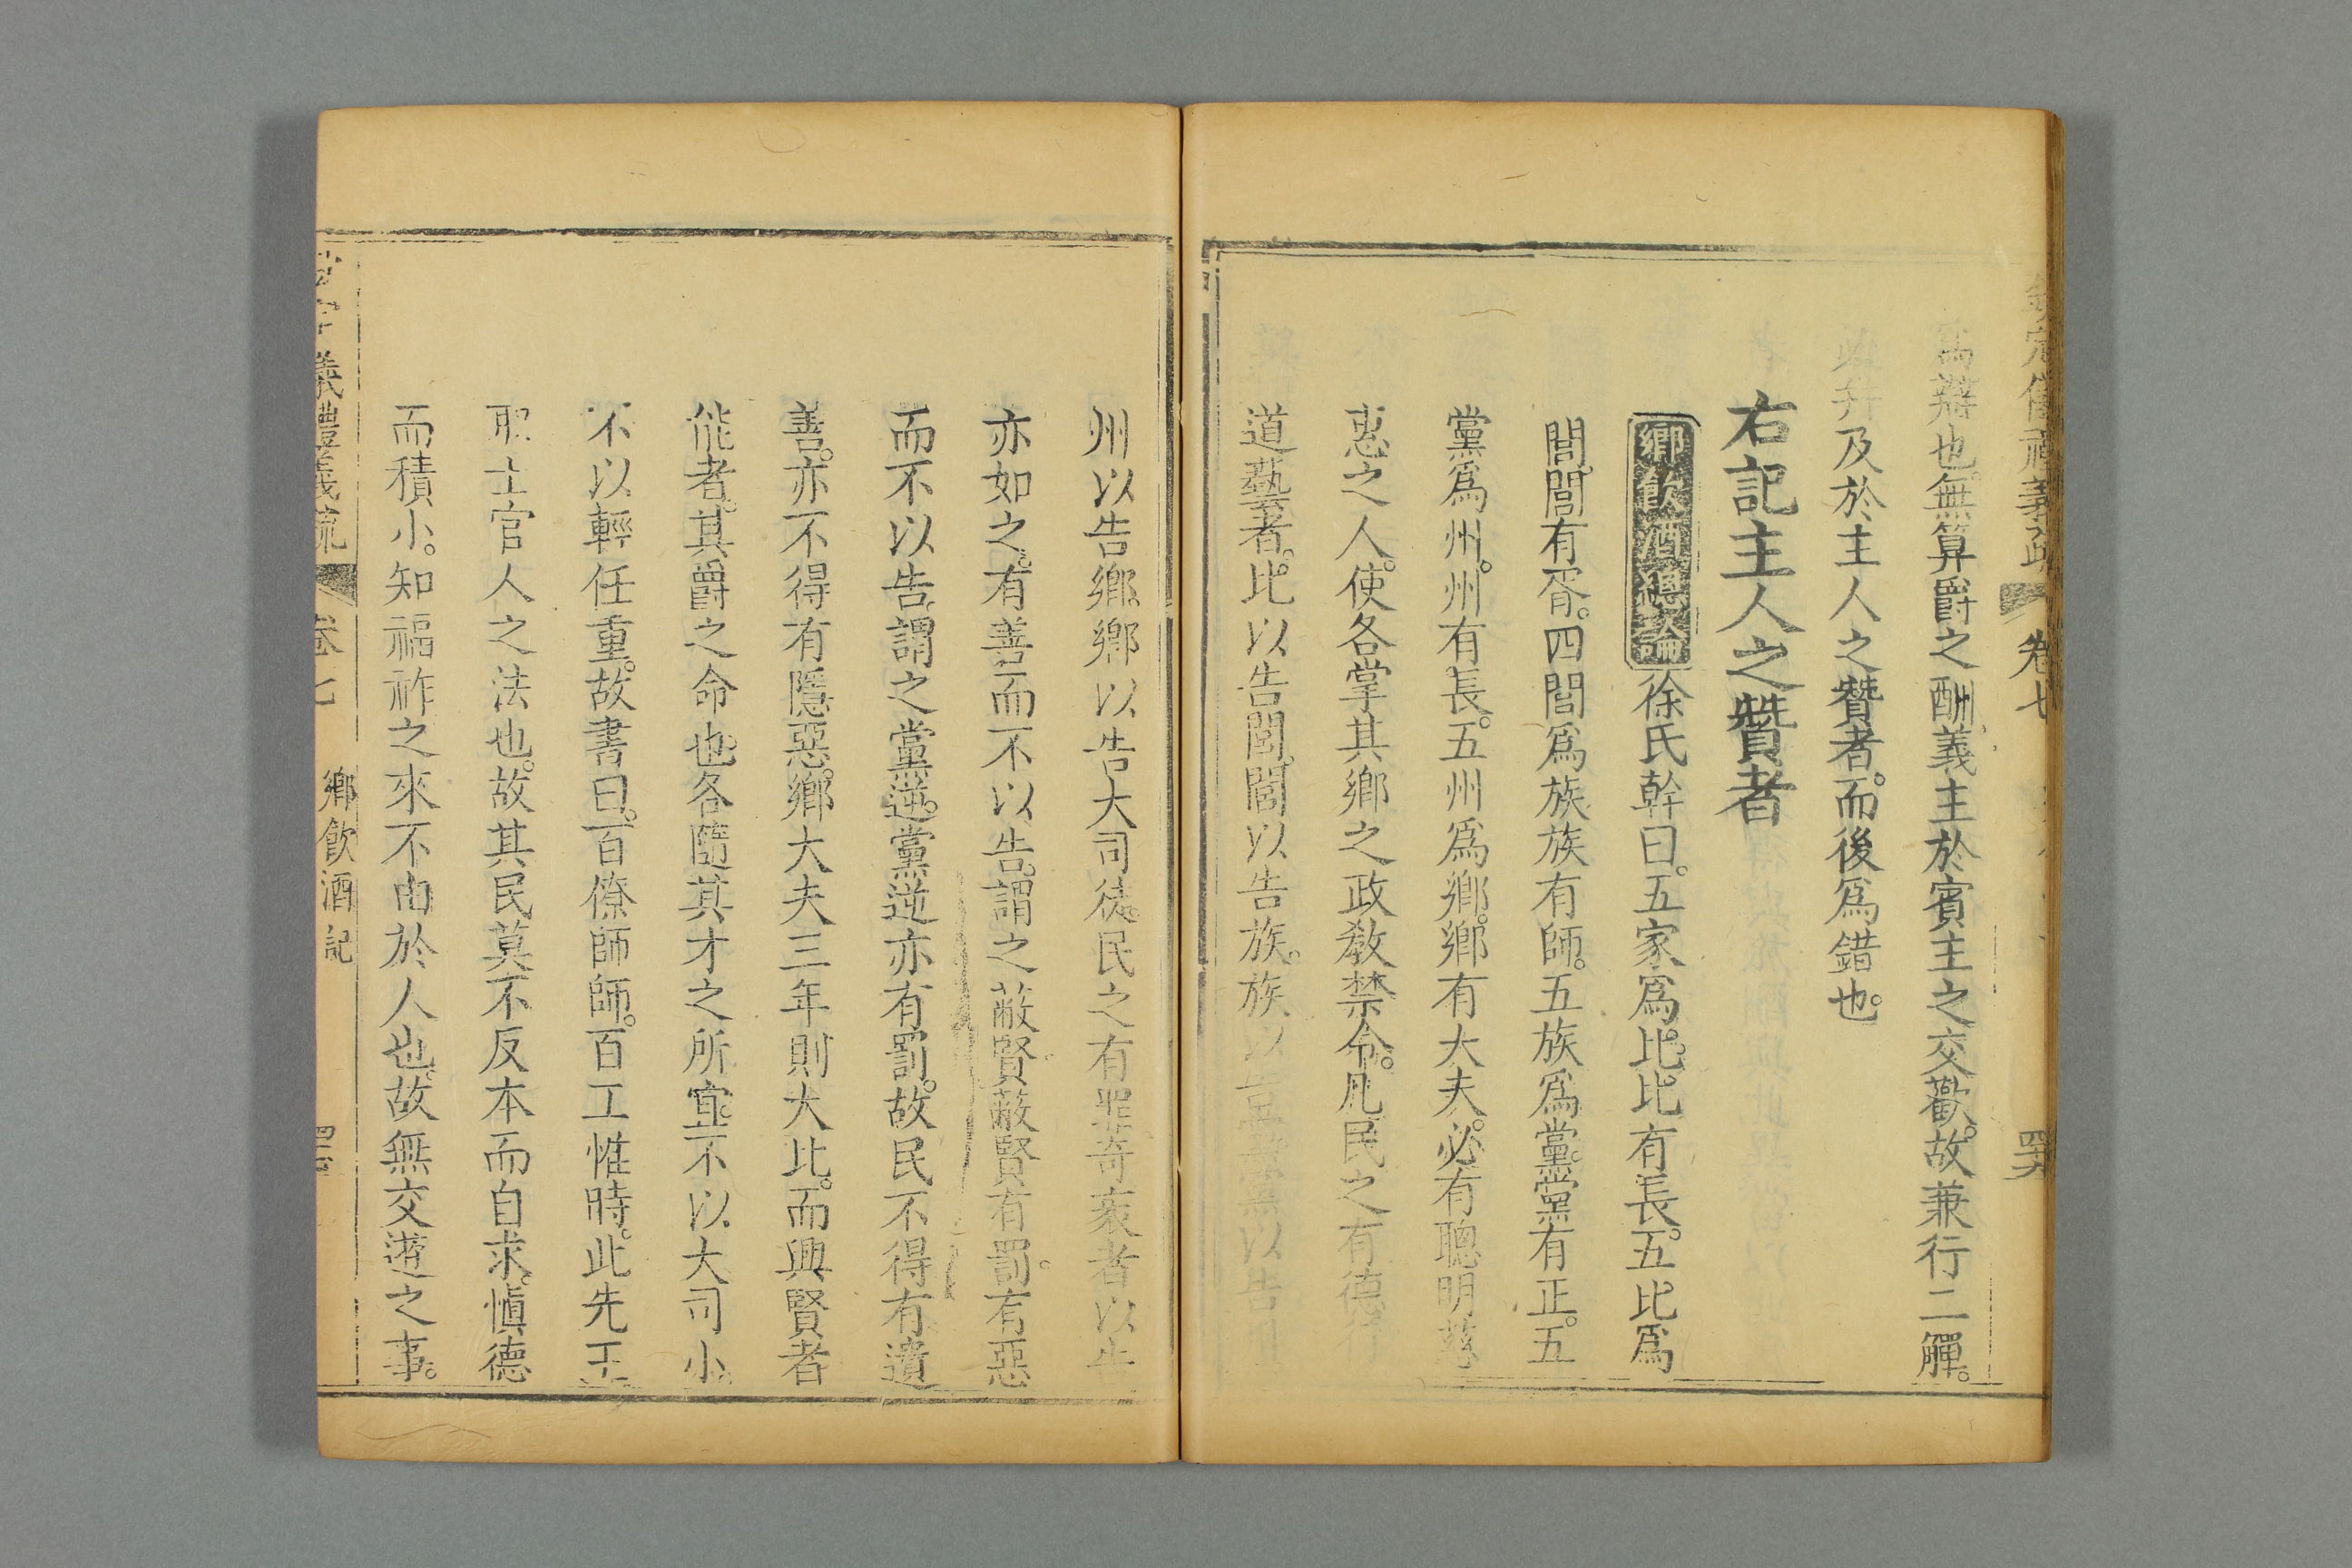 儀禮義疏 卷七
爲辯也。無算爵之酬義主於賓主之交歡。故兼行二觶。
必弁及於主人之贊者。而後爲錯也。
右記主人之贊者
鄉飲酒總論 徐氏幹曰。五家爲比。比有長。五比爲
閭。閭有胥。四閭爲族。族有師。五族爲黨。黨有正。五
黨爲州。州有長。五州爲鄉。鄉有大夫。必有聰明慈
惠之人。使各掌其鄉之政教禁令。凡民之有德行
道藝者。比以告閭。閭以告族。族以告黨。黨以告
州以告鄉。鄉以告大司徒。民之有罪奇衺者以告
亦如之。有善而不以告。謂之蔽賢。蔽賢有罰。有惡
而不以告。謂之黨逆。黨逆亦有罰。故民不得有遺
善。亦不得有隱惡。鄉大夫三年則大比。而興賢者
能者。其爵之命也。各隨其才之所宜。不以大司小。
不以輕任重。故書曰。百僚師師。百工惟時。此先王
取士官人之法也。故其民莫不反本而自求。慎德
而積小。知福祚之來不由於人也。故無交遊之事。
儀禮義疏 卷七 鄉飲酒記